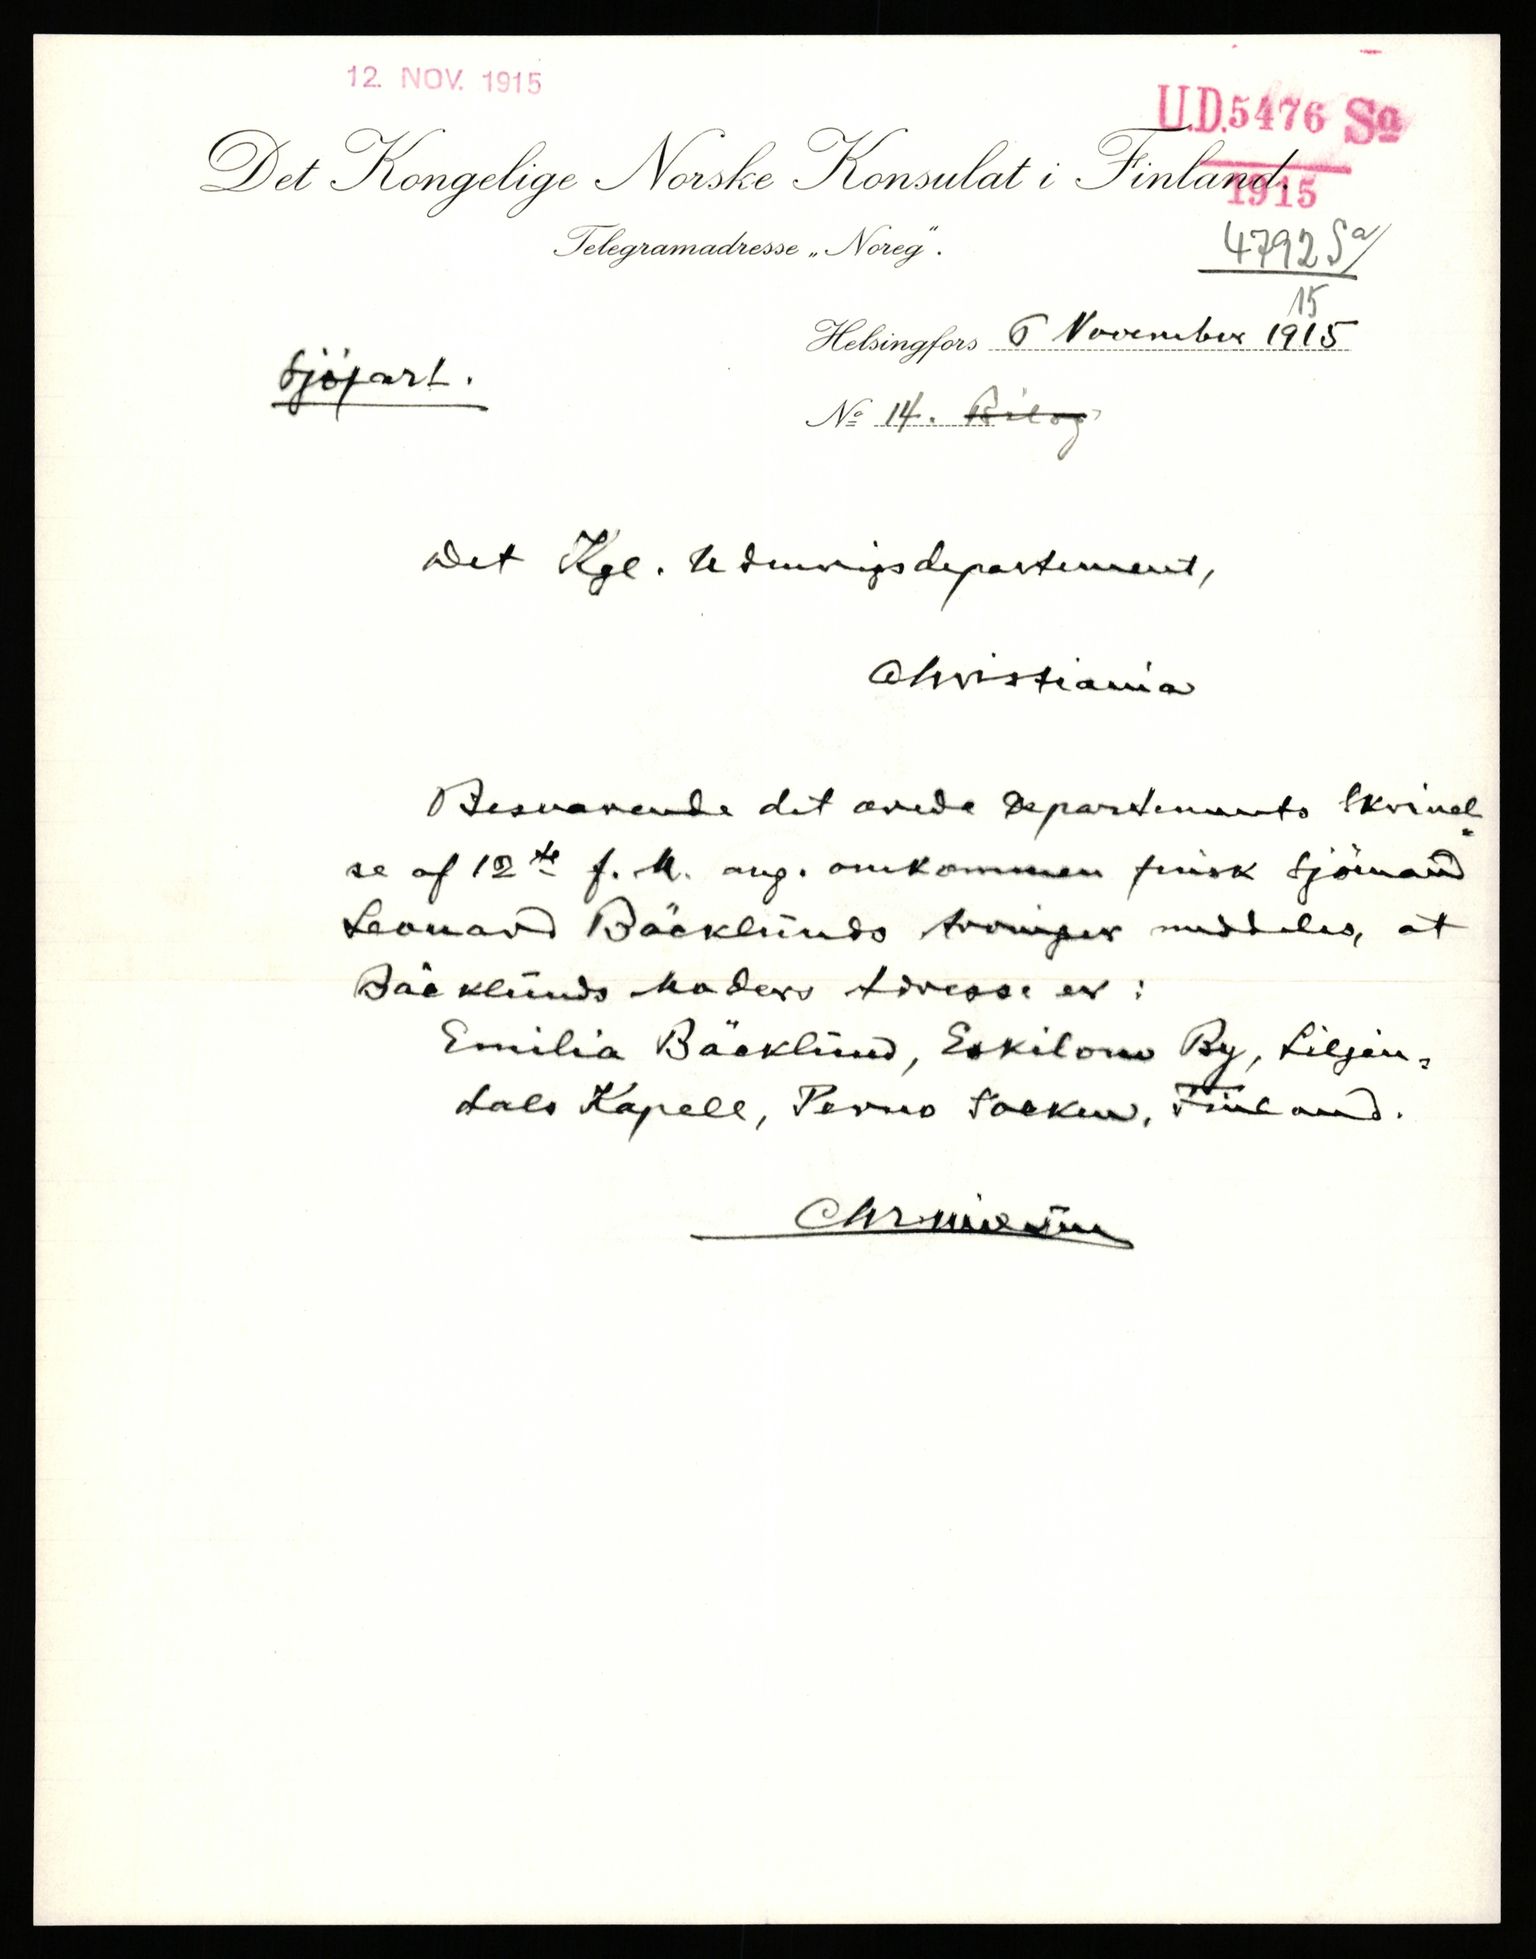 12. NOV. 1915
U.D. 5476 Sa
1915
Det Kongelige Norske Konsulat i Finland.
Telegramadresse „Noreg“.
4792 Sa/
15
Helsingfors 6 November 1915
Sjöfart.
No 14. Bilag
Det Kgl. Udenrigsdepartement,
Christiania
Besvarende det ærede Departements Skrivel
se af 12te f. M. ang. omkommen finsk Sjömand
Leonard Bäcklunds arvinger meddeles, at
Bäcklunds Moders Adresse er:
Emilia Bäcklund, Eskilom By, Liljen-
dals Kapell, Perno Socken, Finland.